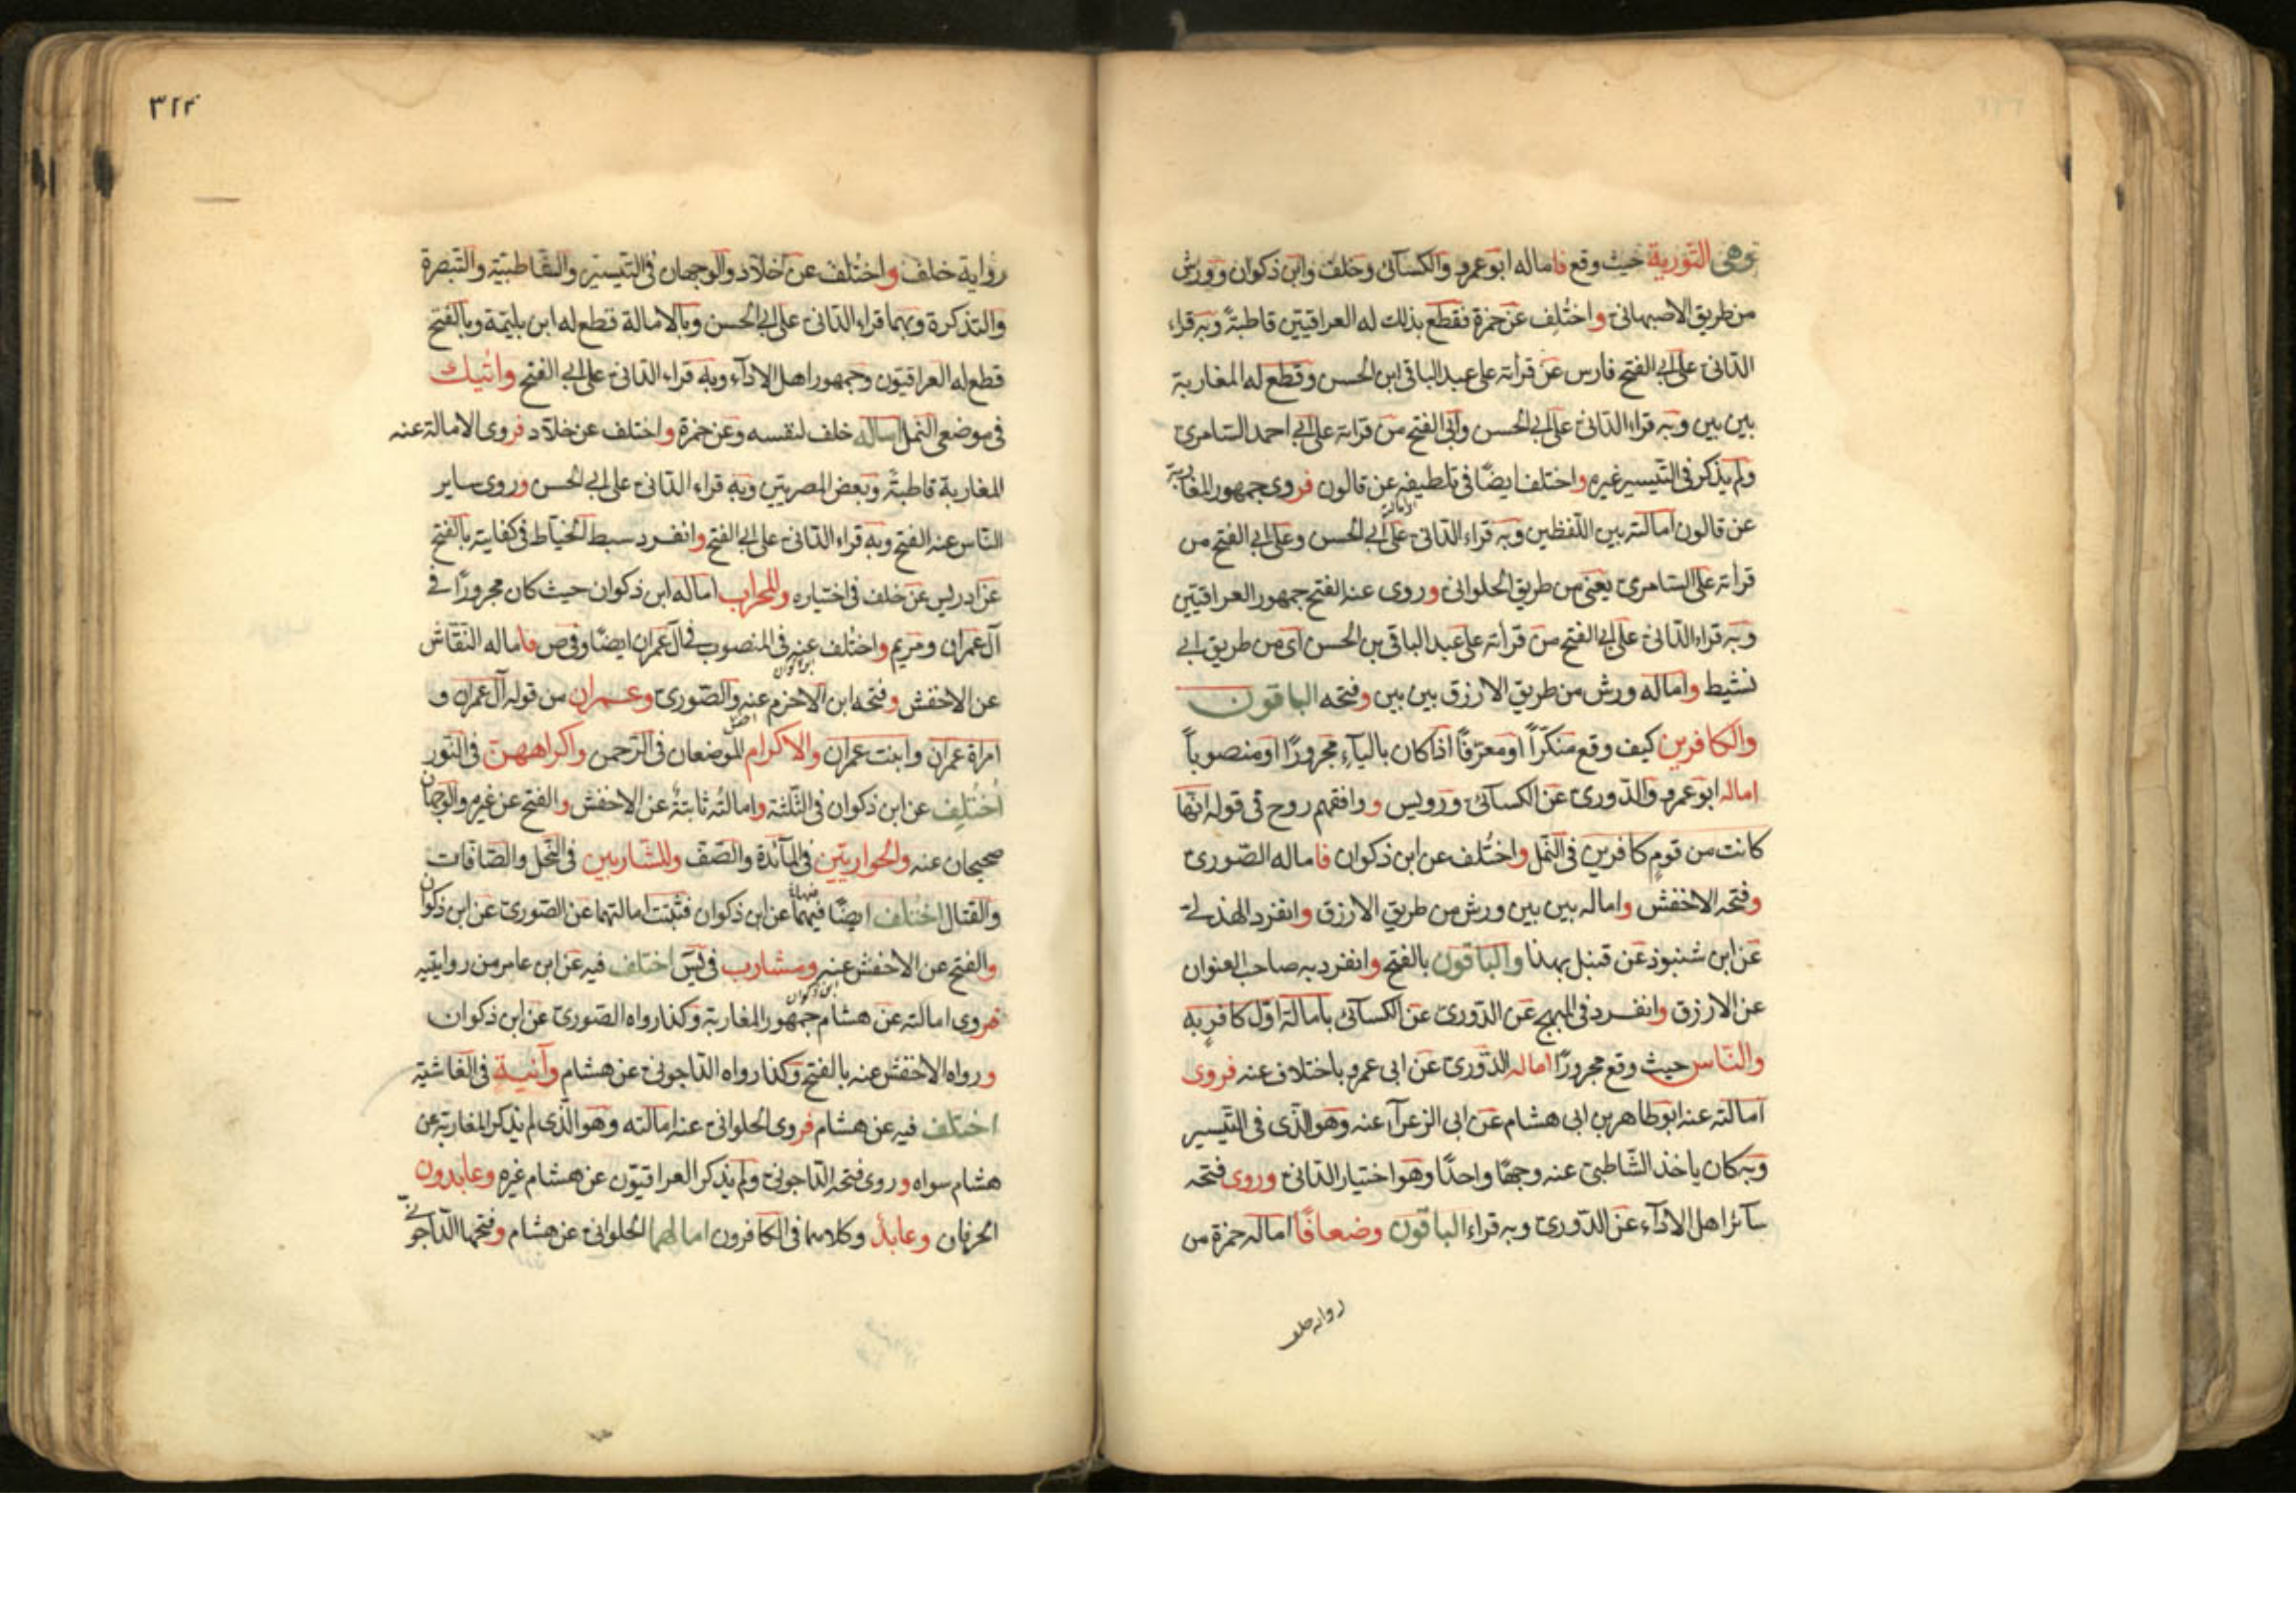 وهى التورية حيث وقع فاماله ابو عمرو والكسآئى وخلف وابن ذكوان وورش
من طريق الاصبهانى واختُلِف عن حمزة فقطع بذلك له العراقيين قاطبةً وبه قراء
الدّانى على ابى الفتح فارس عن قرأته على عبد الباقى ابن الحسن وقطع له المغاربة
بين بين وبه قراء الدّانى على ابى الحسن وابى الفتح من قرأته على ابى احمد السّامرى
ولم يذكر فى التّيسير غيره واختلف ايضًا فى تلطيفه عن قالون فروى جمهور المغاربة
الامالة
عن قالون امالته بين اللّفظين وبه قراء الدّانى على ابى الحسن وعلى ابى الفتح من
قرأته على السّامرى يعنى من طريق الحلوانى وروى عنه الفتح جمهور العراقيّين
وبه قراء الدّانى على ابى الفتح من قرأته على عبد الباقى بن الحسن اى من طريق ابى
نشيط واماله ورش من طريق الازرق بين بين وفتحه الباقون
والكافرين كيف وقع منكّرًا اومعرّفًا اذا كان باليآء مجرورًا اومنصوباً
اماله ابو عمرو والدّورى عن الكسآئى ورويس ووافقهم روح فى قوله انّها
كانت من قومٍ كافرين فى النّمل واختُلف عن ابن ذكوان فاماله الصّورى
وفتحه الاخفش واماله بين بين ورش من طريق الازرق وانفرد الهذلى
عن ابن شنبوذ عن قنبل بهذا والباقون بالفتح وانفرد به صاحب العنوان
عن الازرق وانفرد فى المبهج عن الدّورى عن الكسآئى بامالة اوّل كافرٍ به
والنّاس حيث وقع مجرورًا اماله الدّورى عن ابى عمرو باختلاف عنه فروى
امالته عنه ابو طاهر بن ابى هشام عن ابى الزعرآء عنه وهو الّذى فى التّيسير
وبه كان ياخذ الشّاطبى عنه وجهًا واحدًا وهو اختيار الدّانى وروى فتحه
سآئر اهل الادآء عن الدّورى وبه قراء الباقون وضعافًا اماله حمزة من
روايه خلف
٣٢٢
رواية خلف واختُلف عن خلّاد والوجهان فى التّيسير والشّاطبيّة والتّبصرة
والتذكرة وبهما قراء الدّانى على ابى الحسن وبالامالة قطع له ابن بليّمة وبالفتح
قطع له العراقيّون وجمهور اهل الادآء وبه قراء الدّانى على ابى الفتح واتيك
فى موضعى النمل اماله خلف لنفسه وعن حمزة واختلف عن خلّاد فروى الامالة عنه
المغاربة قاطبةً وبعض المصريّين وبه قراء الدّانى على ابى الحسن وروى ساير
النّاس عنه الفتح وبه قراء الدّانى على ابى الفتح وانفرد سبط الخيّاط فى كفايته بالفتح
عن ادريس عن خلف فى اختياره والمحراب اماله ابن ذكوان حيث كان مجرورًا فى
آل عمران ومريم واختُلف عنه فى المنصوب فى آل عمران ايضًا وفى ص فاماله النّقّاش
ابن ذكوان
عن الاخفش وفتحه ابن الاخرم عنه والصّورى وعمران من قوله آل عمران و
امراة عمران وابنت عمران والاكرام الموضعان فى الرّحمن واكراههنّ فى النّور
اُختُلِف عن ابن ذكوان فى الثّلثة وامالتُه ثابتةٌ عن الاخفش والفتح عن غيره والوجهان
صحيحان عنه والحواريّين فى المآئدة والصّف وللشّاربين فى النّحل والصّافات
والقتال اختُلف ايضًا فيهما عن ابن ذكوان فثبتت امالتهما عن الصّورى عن ابن ذكوان
والفتح عن الاخفش عنه ومشارب فى يس اختلف فيه عن ابن عامر من روايتيه
ابن ذكوان
فروى امالته عن هشام جمهور المغاربة وكذا رواه الصّورى عن ابن ذكوان
ورواه الاخفش عنه بالفتح وكذا رواه الدّاجونى عن هشام وآنية فى الغاشية
اختلف فيه عن هشام فروى الحلوانى عنه امالته وهو الّذى لم يذكر المغاربة عن
هشام سواه وروى فتحه الدّاجونى ولم يذكر العراقيّون عن هشام غيره وعابدون
الحرفان وعابدٌ وكلاهما فى الكافرون امالهما الحلوانى عن هشام وفتحهما الدّاجونى